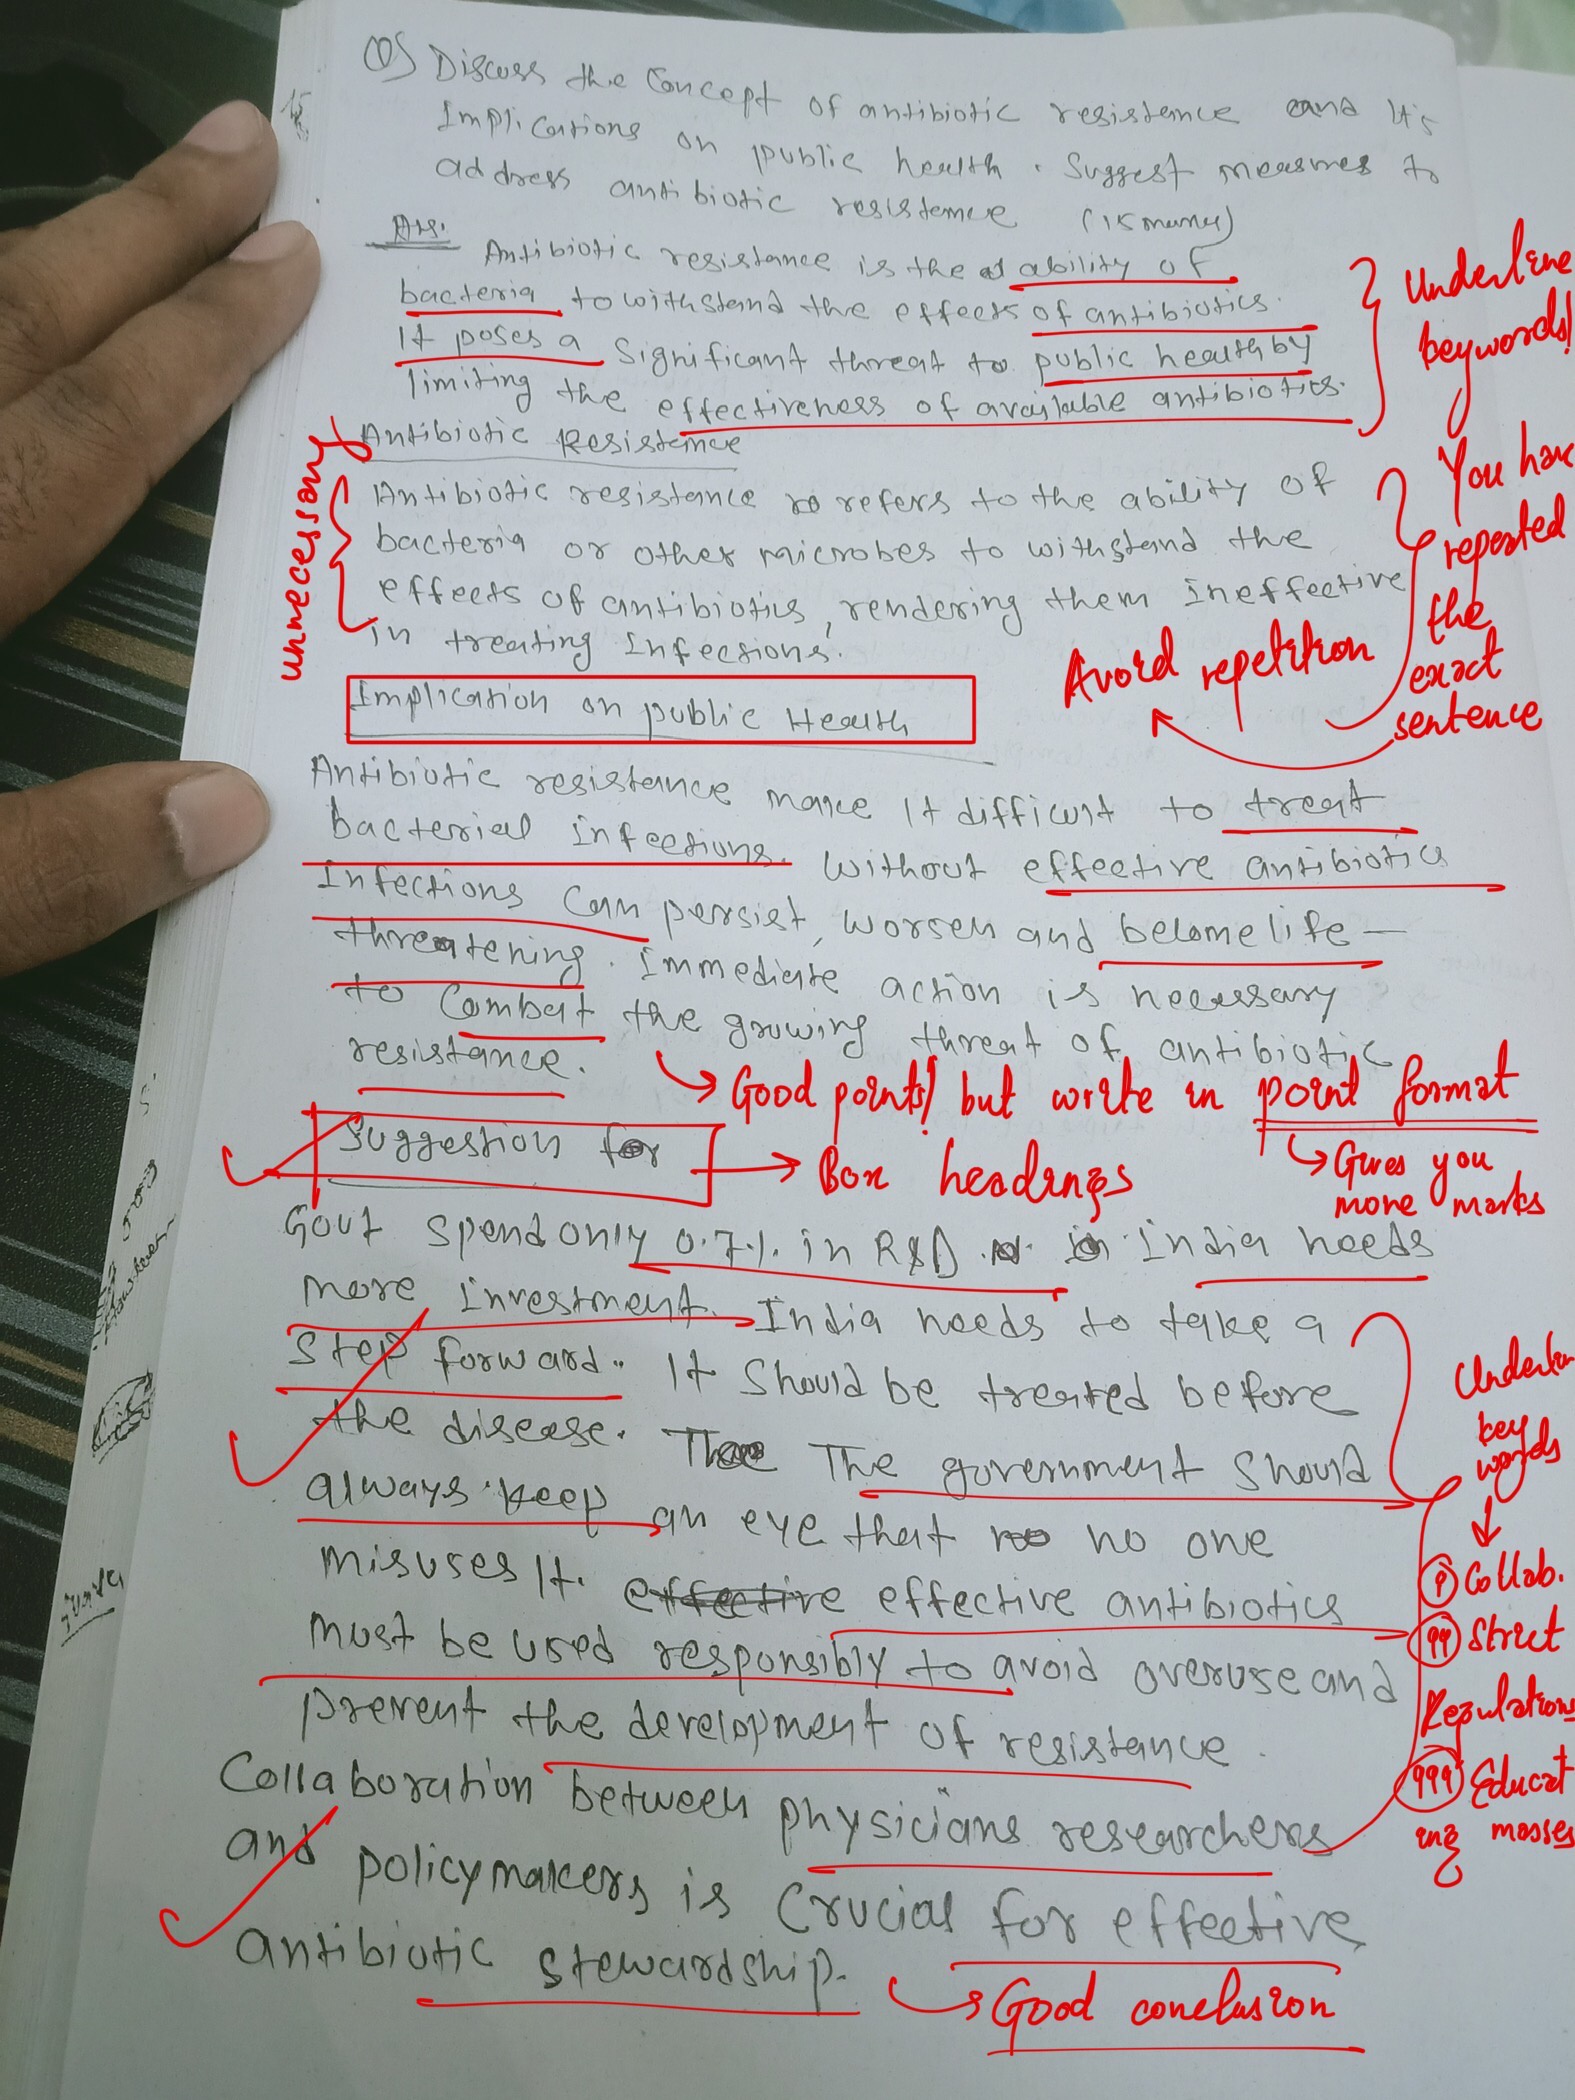 Q5) Discuss the Concept of antibiotic resistance and It's
Implications on public health. Suggest measures to
address antibiotic resistance (15 marks)
Ans.
Antibiotic resistance is the ability of
bacteria to withstand the effects of antibiotics.
It poses a significant threat to public health by
limiting the effectiveness of available antibiotics.
Underline
keywords!
Antibiotic Resistance
Antibiotic resistance refers to the ability of
bacteria or other microbes to withstand the
effects of antibiotics, rendering them Ineffective
in treating Infections.
unnecessary
You have
repeated
the
exact
sentence
Avoid repetition
Implication on public Health
Antibiotic resistance make It difficult to treat
bacterial infections. Without effective antibiotics
Infections can persist, worsen and become life-
threatening. Immediate action is necessary
to combat the growing threat of antibiotic
resistance.
Good points! but write in point format
Gives you
more marks
Suggestion for
Box headings
Govt spend only 0.7%. in R&D. India needs
more investment. India needs to take a
step forward. It should be treated before
the disease. The government should
always keep an eye that no one
misuses It. effective antibiotics
must be used responsibly to avoid overuse and
prevent the development of resistance.
Collaboration between physicians researchers
and policymakers is crucial for effective
antibiotic stewardship.
Underline
key
words
Collab.
Strict
Regulations
Educat
ing masses
Good conclusion